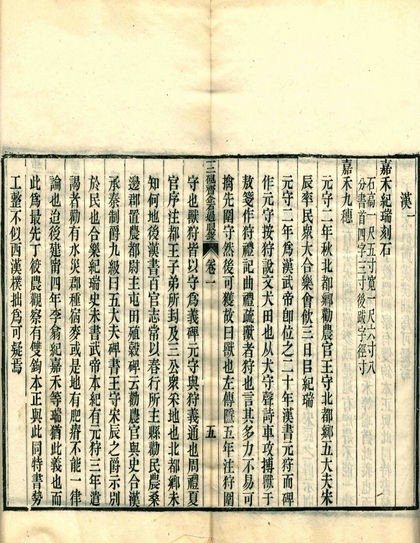 漢
嘉禾紀瑞刻石
石高一尺五寸寬一尺六寸八
分書首四字三寸後跋字徑寸
嘉禾九穗
元守二年秋北都鄉勸農官王守北都鄉五大夫宋
辰率民衆大合樂會飲三日㠯紀瑞
元守二年爲漢武帝卽位之二十年漢書元狩而碑
作元守按狩說文犬田也从犬守聲詩車攻搏獸于
敖箋作狩禮記曲禮疏獸者狩也言其多力不易可
擒先圍守然後可獲故曰獸也左傳隱五年注狩圍
守也獸狩皆以守爲義碑元守與狩義通也周禮夏
官序注都王子弟所封及三公采地也北都鄉未
知何地後漢書百官志常以春行所主縣勸民農桑
邊郡置農都尉主屯田殖穀碑云勸農官與史合漢
承秦制爵九級曰五大夫碑書王守宋辰之爵示別
於民也合樂紀瑞史未書武帝本紀有元狩三年遣
謁者勸有水災郡種宿麥或是地有肥瘠不能一律
論也迨後建甯四年李翕紀嘉禾等瑞猶此義也而
此爲最先丁筱農觀察有雙鉤本正與此同特書勢
工整不似西漢樸拙爲可疑焉
卷一
五